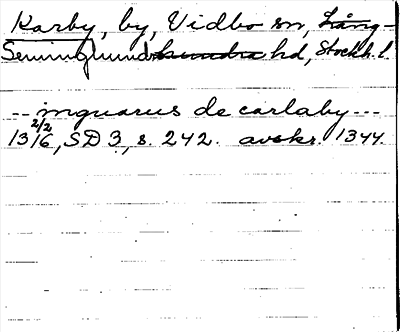 Karby, by, Vidbo sn, Lång-
Seminghundrahundra hd, Stockh. l.
--- inguarus de carlaby ---
13 2/2 16, SD 3, s. 242. avskr. 1344.